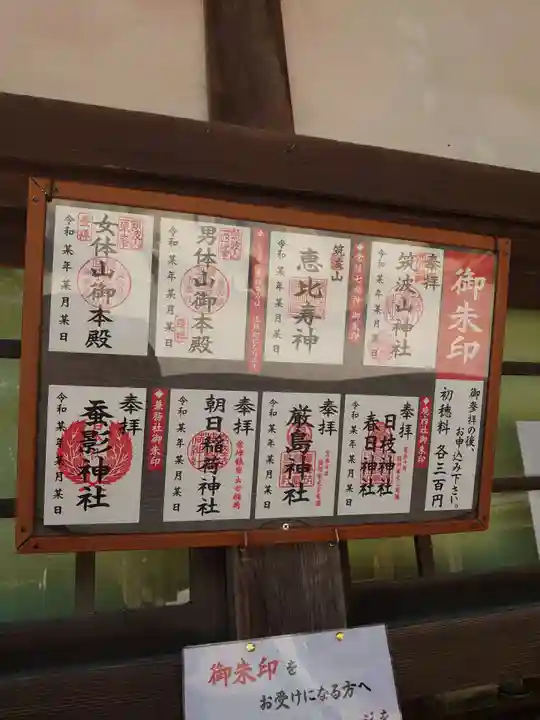 御朱印
御参拝の後、
お申込み下さい。
初穂料 各三百円
奉拝
筑波山神社
令和 某年 某月 某日
筑波山
恵比寿神
令和 某年 某月 某日
男体山御本殿
令和 某年 某月 某日
女体山御本殿
令和 某年 某月 某日
◆境内社御朱印
奉拝
日枝神社
春日神社
令和 某年 某月 某日
奉拝
厳島神社
令和 某年 某月 某日
奉拝
朝日稲荷神社
令和 某年 某月 某日
◆兼務社御朱印
奉拝
蚕影神社
令和 某年 某月某日
御朱印を
お受けになる方へ